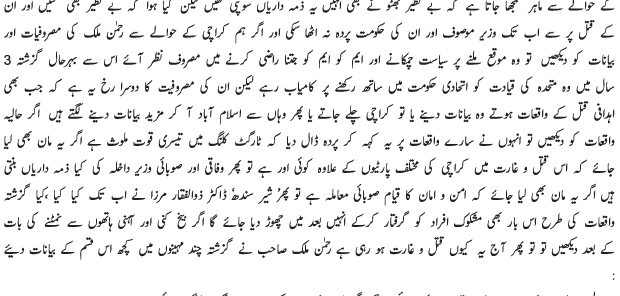 کے حوالے سے ماہر سمجھا جاتا ہے کہ بے نظیر بھٹو نے بھی انہیں یہ ذمہ داریاں سونپی تھیں لیکن کیا ہوا کہ بے نظیر بھی گئیں اور ان
کے قتل پر سے اب تک وزیر موصوف اور ان کی حکومت پردہ نہ اٹھا سکی اور اگر ہم کراچی کے حوالے سے رحمٰن ملک کی مصروفیات اور
بیانات کو دیکھیں تو وہ موقع ملنے پر سیاست چمکانے اور ایم کیو ایم کو جتنا راضی کرنے میں مصروف نظر آئے اس سے بہرحال گزشتہ 3
سال میں وہ متحدہ کی قیادت کو اتحادی حکومت میں ساتھ رکھنے پر کامیاب رہے لیکن ان کی مصروفیت کا دوسرا رخ یہ ہے کہ جب بھی
اہدافی قتل کے واقعات ہوتے وہ بیانات دینے یا تو کراچی چلے جاتے یا پھر وہاں سے اسلام آباد آ کر مزید بیانات دینے لگتے ہیں اگر حالیہ
واقعات کو دیکھیں تو انہوں نے سارے واقعات پر یہ کہہ کر پردہ ڈال دیا کہ ٹارگٹ کلنگ میں تیسری قوت ملوث ہے اگر یہ مان بھی لیا
جائے کہ اس قتل و غارت میں کراچی کی مختلف پارٹیوں کے علاوہ کوئی اور ہے تو پھر وفاقی اور صوبائی وزیر داخلہ کی کیا ذمہ داریاں بنتی
ہیں اگر یہ مان بھی لیا جائے کہ امن و امان کا قیام صوبائی معاملہ ہے تو پھر شیر سندھ ڈاکٹر ذوالفقار مرزا نے اب تک کیا کیا ،کیا گزشتہ
واقعات کی طرح اس بار بھی مشکوک افراد کو گرفتار کرکے انہیں بعد میں چھوڑ دیا جائے گا اگر بیخ کنی اور آہنی ہاتھوں سے نمٹنے کی بات
کے بعد دیکھیں تو تو پھر آج یہ کیوں قتل و غارت ہو رہی ہے رحمٰن ملک صاحب نے گزشتہ چند مہینوں میں کچھ اس قسم کے بیانات دیئے
: